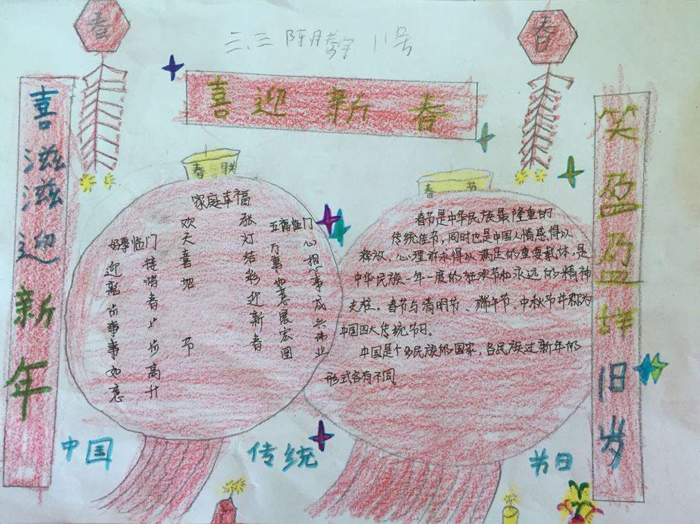 春
三、三
11号
春
喜迎新春
喜滋滋迎新年
笑盈盈辞旧岁
春联
家庭幸福
张灯结彩迎新春
欢天喜地 节
五福临门
心想事成兴伟业
万事如意展宏图
临门
步步高升
迎新 事事如意
春节
春节是中华民族最隆重的
传统佳节,同时也是中国人情感得以
释放、心理诉求得以满足的重要载体,是
中华民族一年一度的狂欢节和永远的精神
支柱。春节与清明节、端午节、中秋节并称为
中国四大传统节日。
中国是个多民族的国家,各民族过新年的
形式各有不同
中国 传统 节日